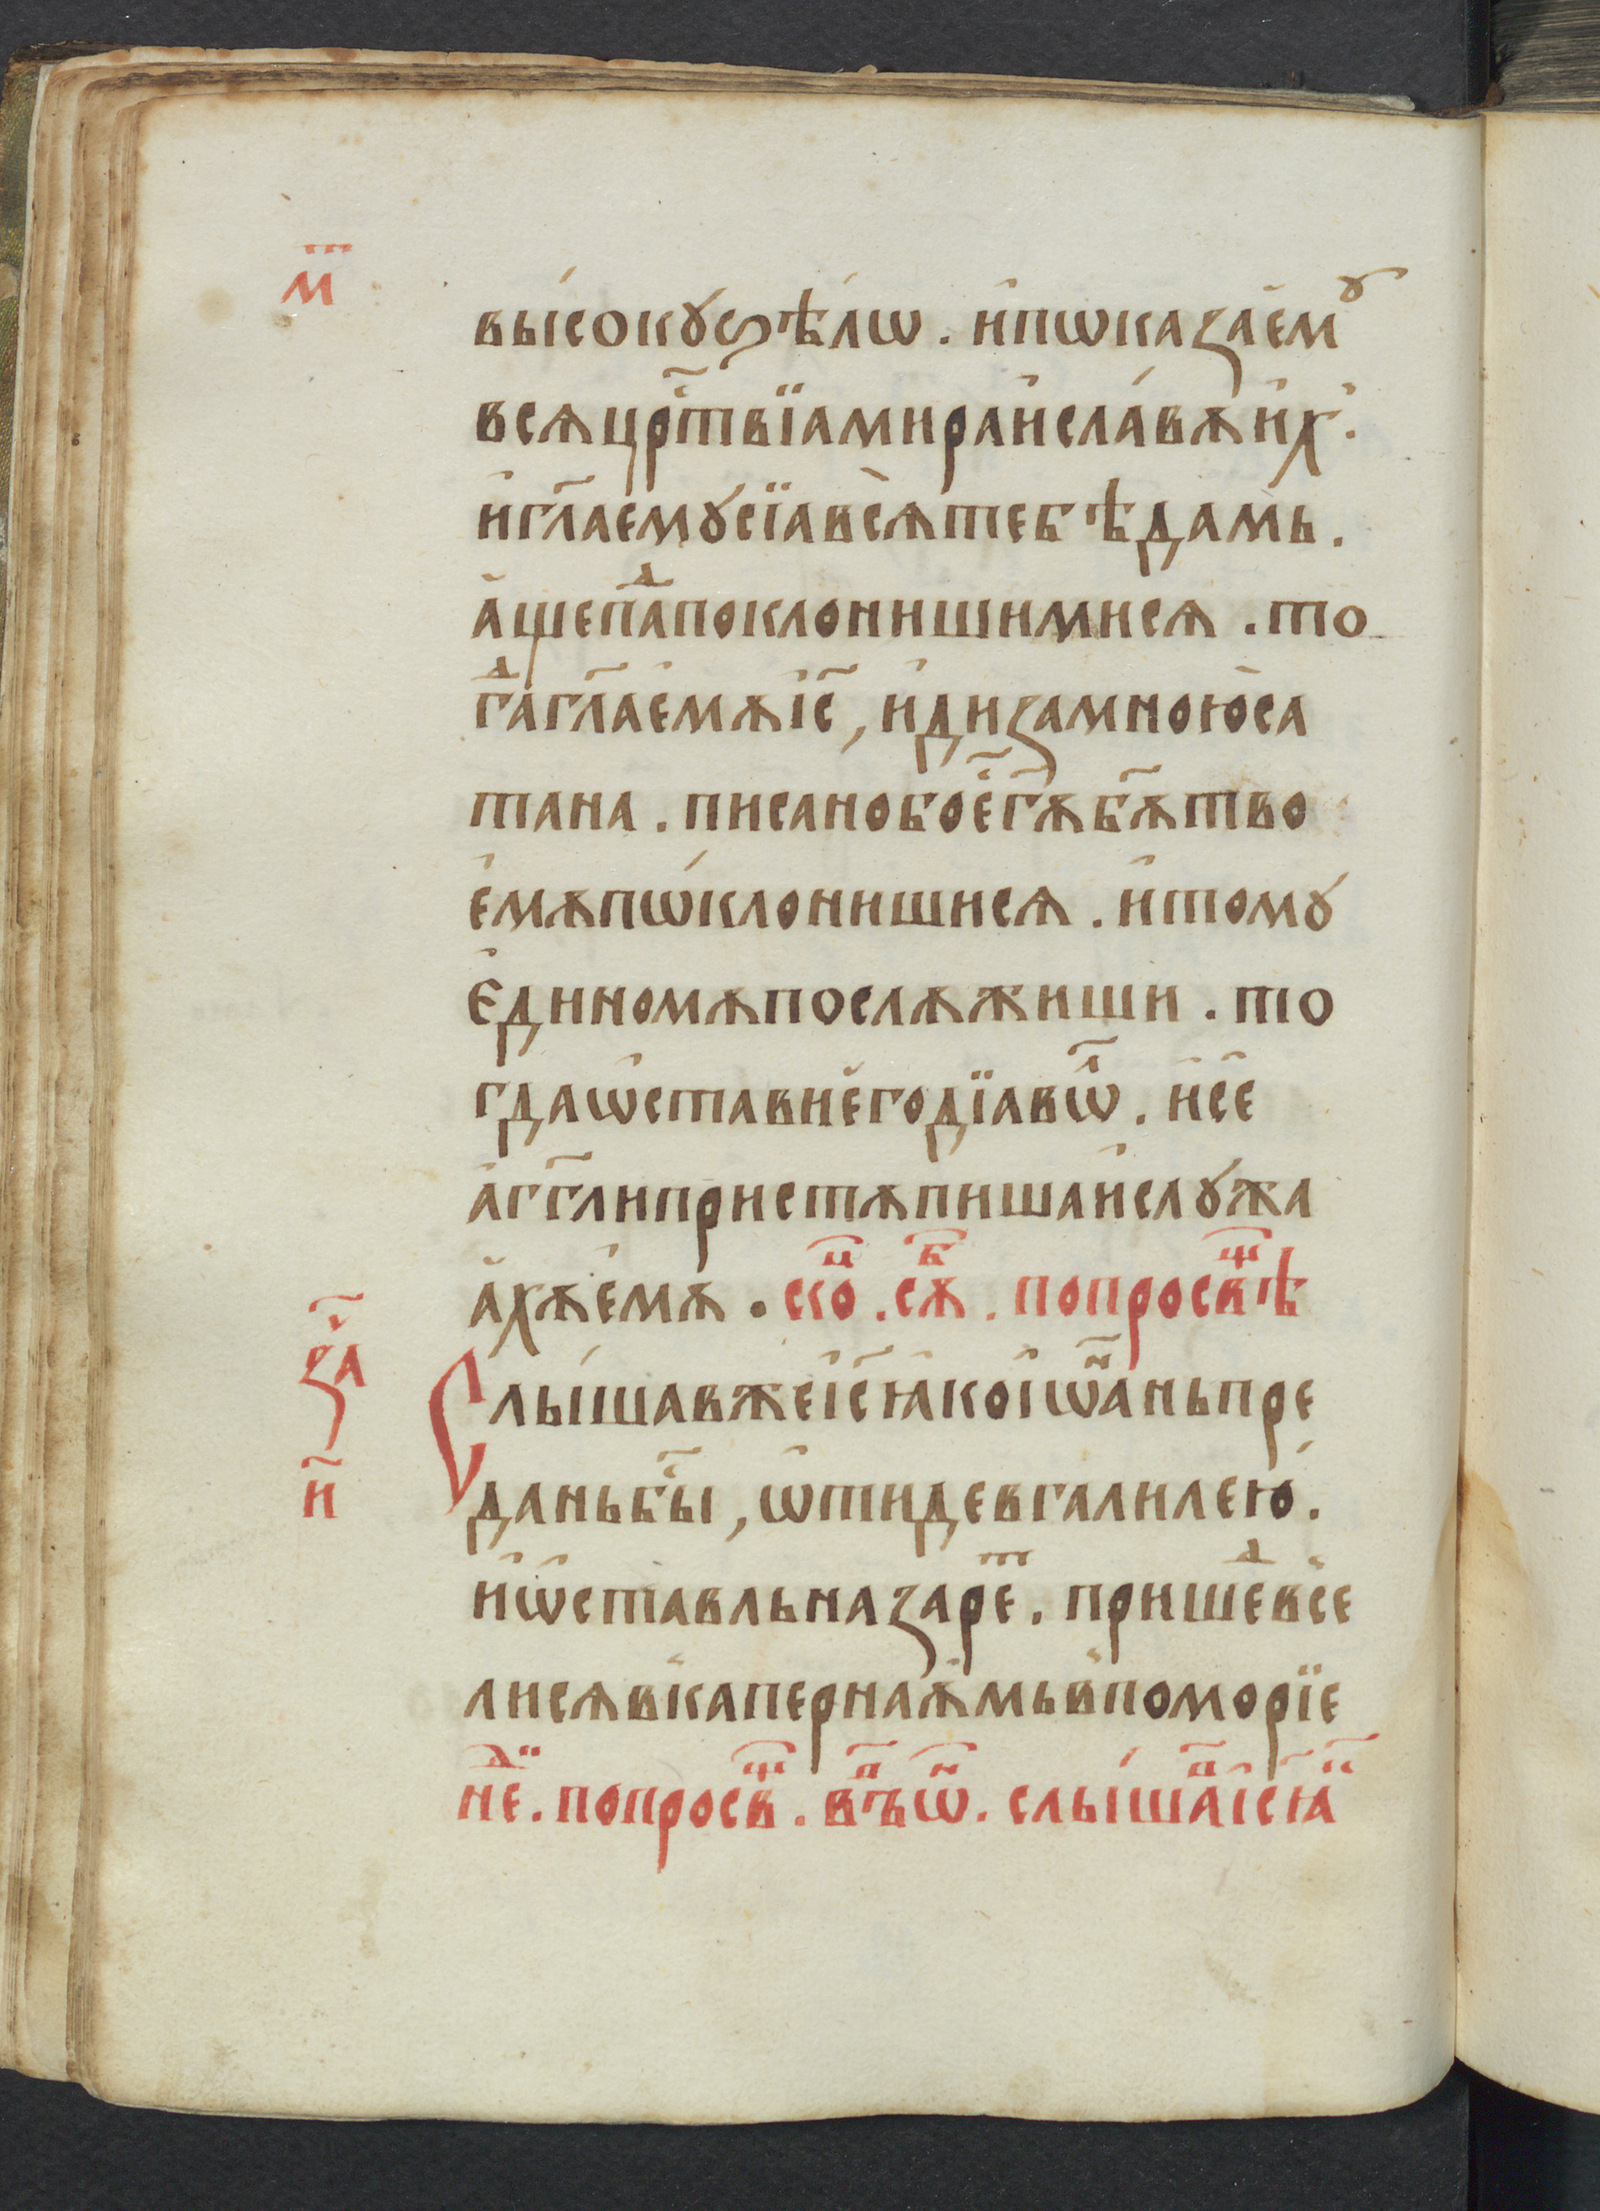 м҃
высокꙋ ѕѣлѡ . и҆ пѡказа е҆мꙋ
всѧ црⷭ҇твїа мира и҆ сла́вѫ и҆х .
и҆ гл҃а емꙋ сїа всѧ тебѣ дамь .
а҆ще паⷣ поклониши ми сѧ . то
гаⷣ гл҃а е҆мѫ і҆с҃ , и҆ди за мною са
тана . писано бо е҆ⷭ҇ г҃ѫ б҃ѫ тво
емѫ пѡклониши сѧ . и҆ томꙋ
є҆диномѫ послѫжиши . то
гда ѡ҆стави е҆го дїавѡⷧ . и҆ се
а҆гг҃ли пристѫпиша и҆ слꙋжа
а҆хѫ е҆мѫ . коⷰ . сѫⷠ . по просвⷳѣ
за҃
и҃
Слы́шав же і҆с҃ ꙗ҆ко і҆ѡаⷩнь пре
дань бы́ⷭ , ѿтиде в галилею .
и҆ ѡ҆ставль назареⷮ . пришеⷣ все
ли сѧ в капернаѫмь в поморїе
неⷣ . по просвⷳ . въⷫ ѡⷩ . слы́шаⷡ і҆с҃ ꙗ҆ⷦ